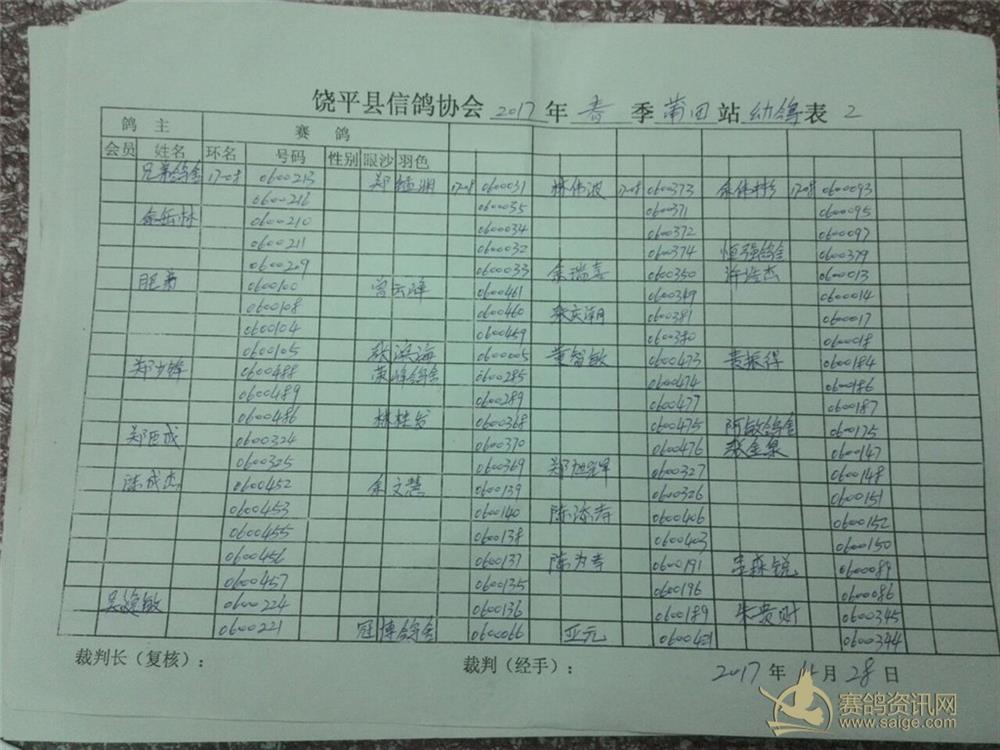 饶平县信鸽协会 2017 年 春 季 莆田 站 幼鸽 表 2
鸽 主 赛 鸽
会员 姓名 环名 号码 性别 眼沙 羽色
兄弟鸽舍 17-08 0600213 郑 17-08 0600031 林伟波 17-08 0600373 余伟彬 17-08 0600093
0600216 0600035 0600371 0600095
余 林 0600210 0600034 0600372 0600097
0600211 0600032 0600374 恒强鸽舍 0600379
0600209 0600033 余瑞喜 0600350 许 杰 0600013
0600100 曾云峰 0600461 0600349 0600014
0600108 0600460 张庆潮 0600381 0600017
0600104 0600459 0600380 0600018
0600105 张洪海 0600005 黄智敏 0600473 黄振得 0600184
郑少锋 0600488 荣峰鸽舍 0600285 0600474 0600186
0600489 0600289 0600477 0600187
0600486 林桂发 0600368 0600475 阿敏鸽舍 0600175
郑 成 0600324 0600370 0600476 张金泉 0600147
0600325 0600369 郑旭 0600327 0600148
陈成杰 0600452 余文慧 0600139 0600326 0600151
0600453 0600140 陈 0600406 0600152
0600455 0600138 0600403 0600150
0600456 0600137 陈为 0600191 森锐 0600089
0600457 0600135 0600196 0600086
吴 敏 0600224 0600136 0600189 朱 财 0600345
0600221 冠博鸽舍 0600066 亚元 0600421 0600344
裁判长（复核）： 裁判（经手）： 2017 年 11 月 28 日
赛鸽资讯网
www.saige.com